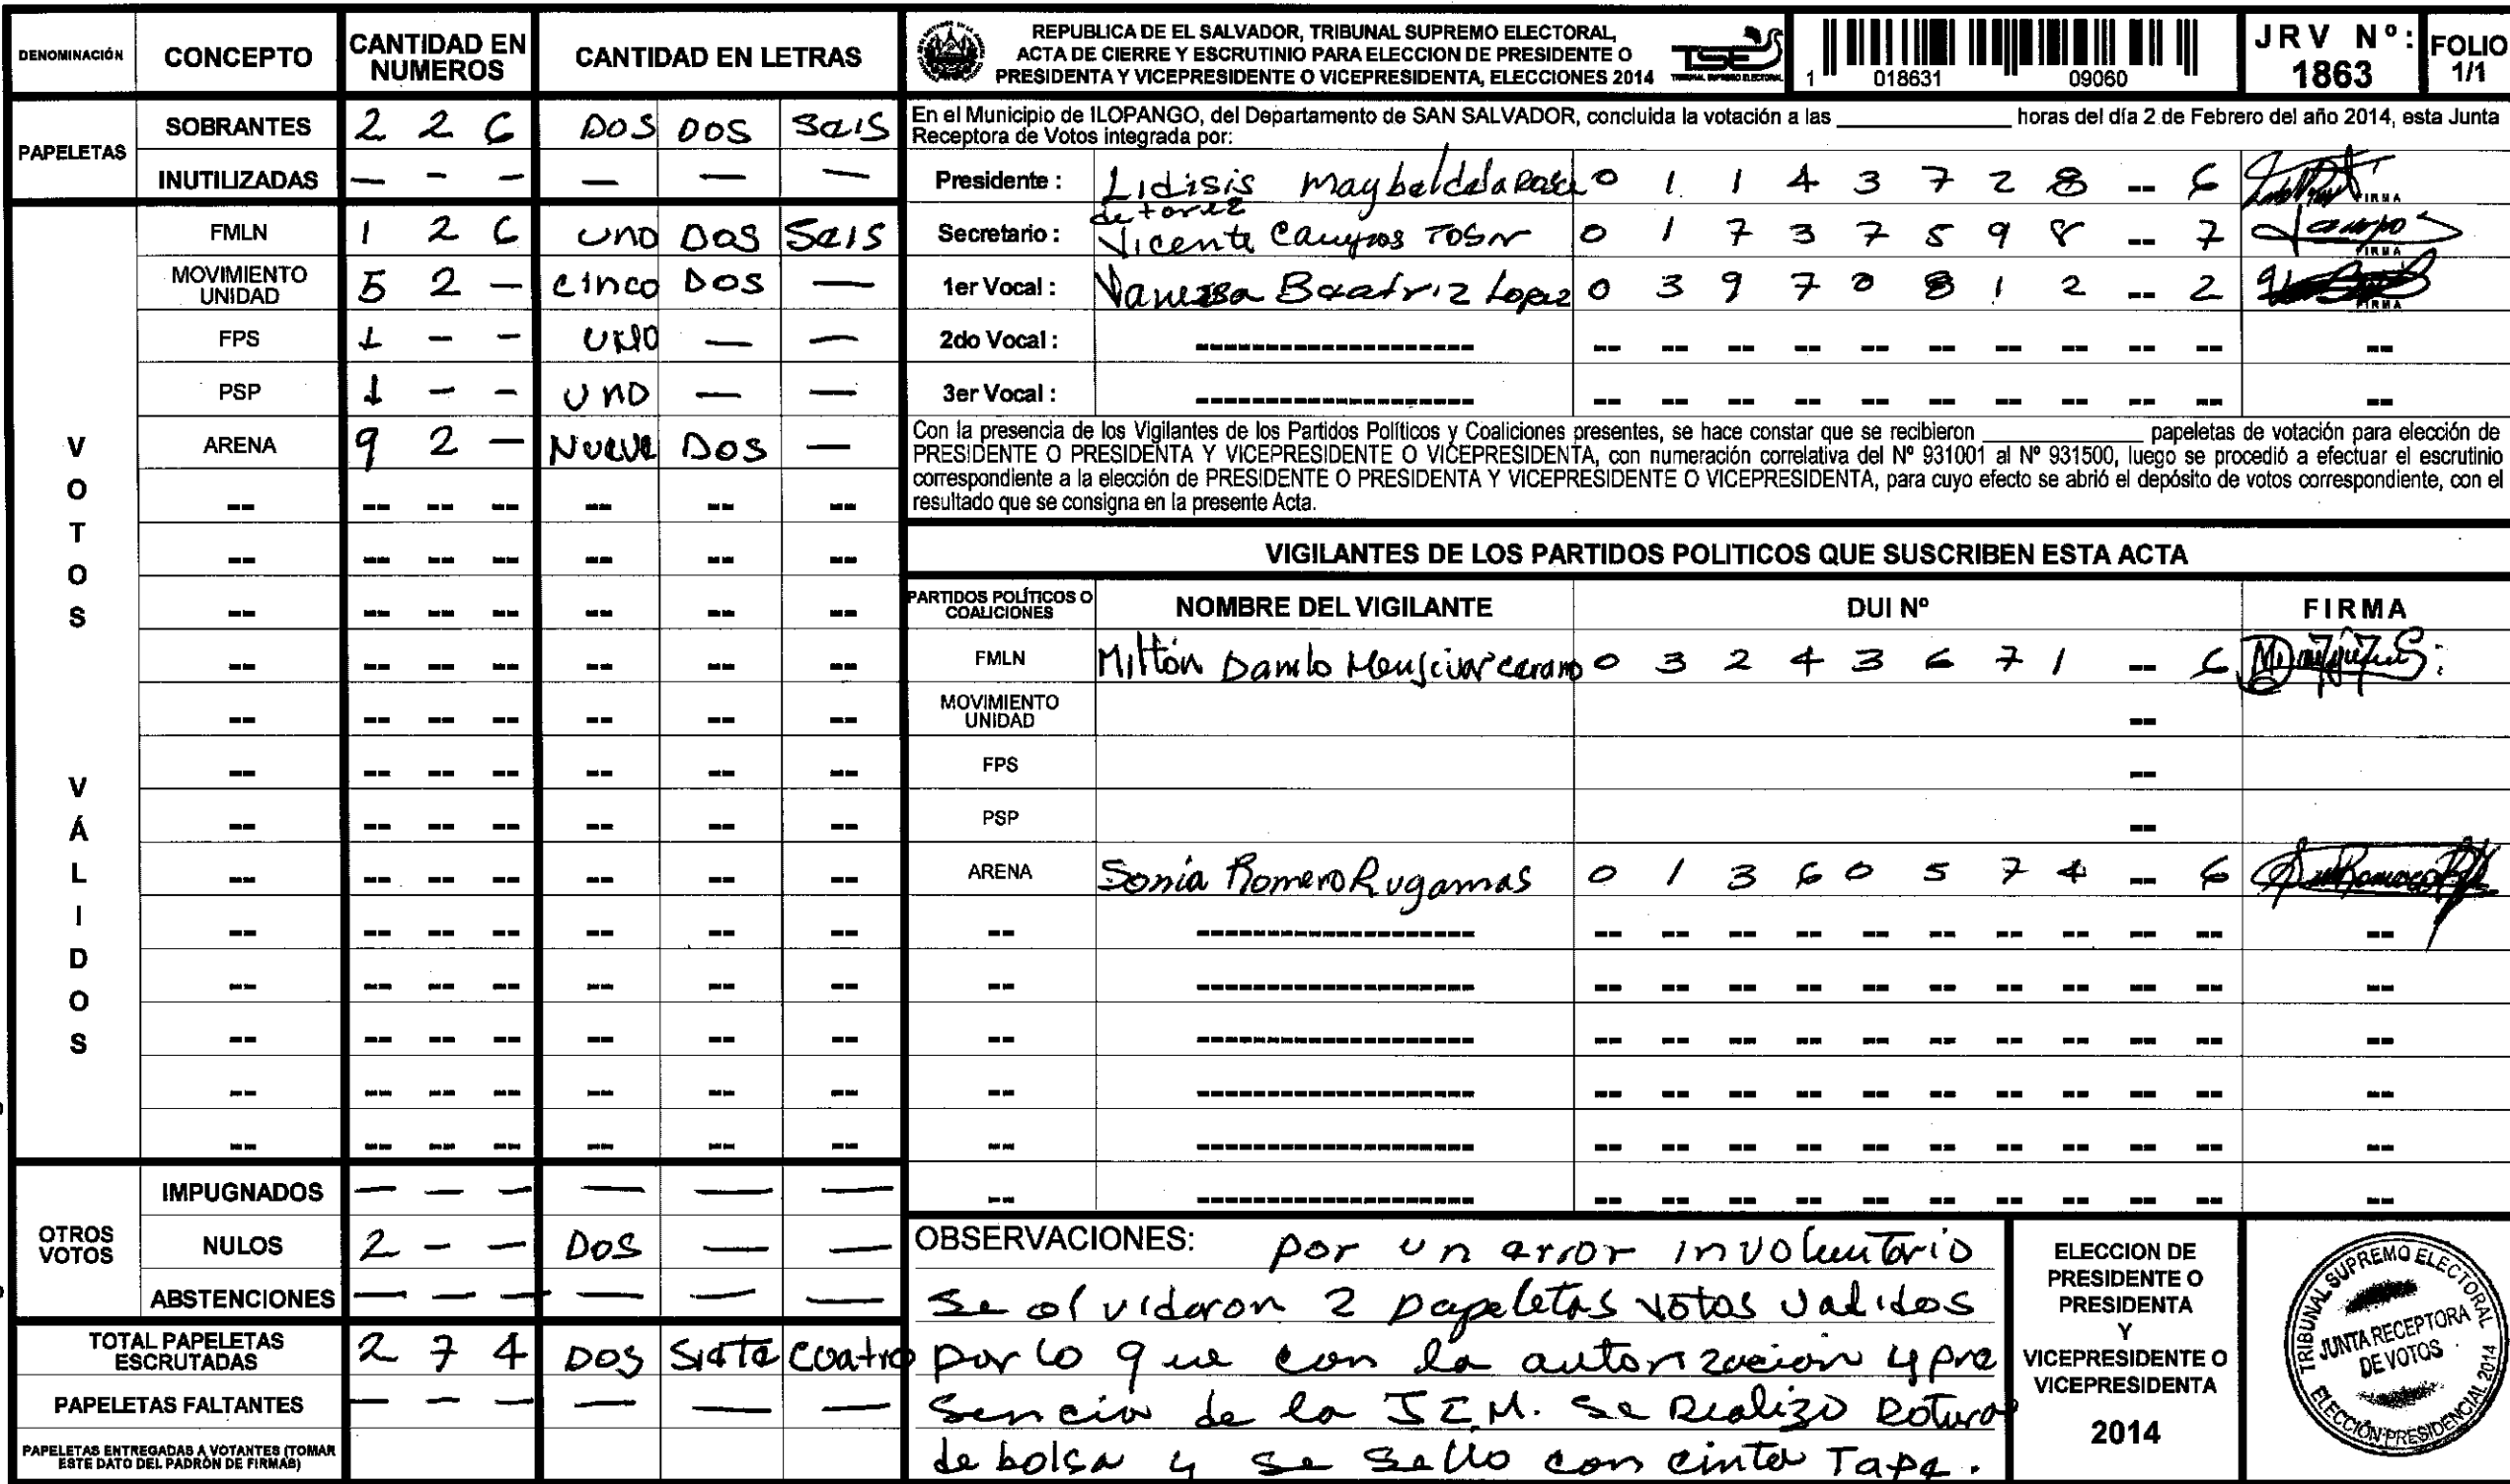 DENOMINACIÓN CONCEPTO CANTIDAD EN NUMEROS CANTIDAD EN LETRAS
PAPELETAS
SOBRANTES 2 2 6 DOS DOS Seis
INUTILIZADAS — - - — — —
VOTOS VÁLIDOS
FMLN 1 2 6 uno Dos Seis
MOVIMIENTO UNIDAD 5 2 — cinco Dos —
FPS 1 - - UNO — —
PSP 1 - - UNO — —
ARENA 9 2 — Nueve Dos —
OTROS VOTOS
IMPUGNADOS — — — — — —
NULOS 2 - — Dos — —
ABSTENCIONES — — — — — —
TOTAL PAPELETAS ESCRUTADAS 2 7 4 DOS Siete Cuatro
PAPELETAS FALTANTES — - — — — —
PAPELETAS ENTREGADAS A VOTANTES (TOMAR
ESTE DATO DEL PADRÓN DE FIRMAS)
REPUBLICA DE EL SALVADOR, TRIBUNAL SUPREMO ELECTORAL,
ACTA DE CIERRE Y ESCRUTINIO PARA ELECCION DE PRESIDENTE O
PRESIDENTA Y VICEPRESIDENTE O VICEPRESIDENTA, ELECCIONES 2014
TSE
TRIBUNAL SUPREMO ELECTORAL
1 018631 09060
JRV Nº: 1863
FOLIO 1/1
En el Municipio de ILOPANGO, del Departamento de SAN SALVADOR, concluida la votación a las ____ horas del día 2 de Febrero del año 2014, esta Junta
Receptora de Votos integrada por:
Presidente : Lidisis Maybel de la 0 1 1 4 3 7 2 8 -- 6 FIRMA
Secretario : Vicente Campos 0 1 7 3 7 5 9 8 -- 7 FIRMA
1er Vocal : Vanessa Beatriz Lopez 0 3 9 7 0 8 1 2 -- 2 FIRMA
2do Vocal :
3er Vocal :
Con la presencia de los Vigilantes de los Partidos Políticos y Coaliciones presentes, se hace constar que se recibieron ____ papeletas de votación para elección de
PRESIDENTE O PRESIDENTA Y VICEPRESIDENTE O VICEPRESIDENTA, con numeración correlativa del Nº 931001 al Nº 931500, luego se procedió a efectuar el escrutinio
correspondiente a la elección de PRESIDENTE O PRESIDENTA Y VICEPRESIDENTE O VICEPRESIDENTA, para cuyo efecto se abrió el depósito de votos correspondiente, con el
resultado que se consigna en la presente Acta.
VIGILANTES DE LOS PARTIDOS POLITICOS QUE SUSCRIBEN ESTA ACTA
PARTIDOS POLÍTICOS O COALICIONES NOMBRE DEL VIGILANTE DUI Nº FIRMA
FMLN Milton Danilo 0 3 2 4 3 6 7 1 -- 6
MOVIMIENTO UNIDAD --
FPS --
PSP --
ARENA Sonia Romero Rugamas 0 1 3 6 0 5 7 4 -- 6
OBSERVACIONES: por un error involuntario
se olvidaron 2 papeletas votos validos
por lo que con la autorizacion y pre
sencia de la J.E.M. se Realizo Rotura
de bolsa y se sello con cinta Tape.
ELECCION DE
PRESIDENTE O
PRESIDENTA
Y
VICEPRESIDENTE O
VICEPRESIDENTA
2014
TRIBUNAL SUPREMO ELECTORAL
JUNTA RECEPTORA
DE VOTOS
ELECCIÓN PRESIDENCIAL 2014